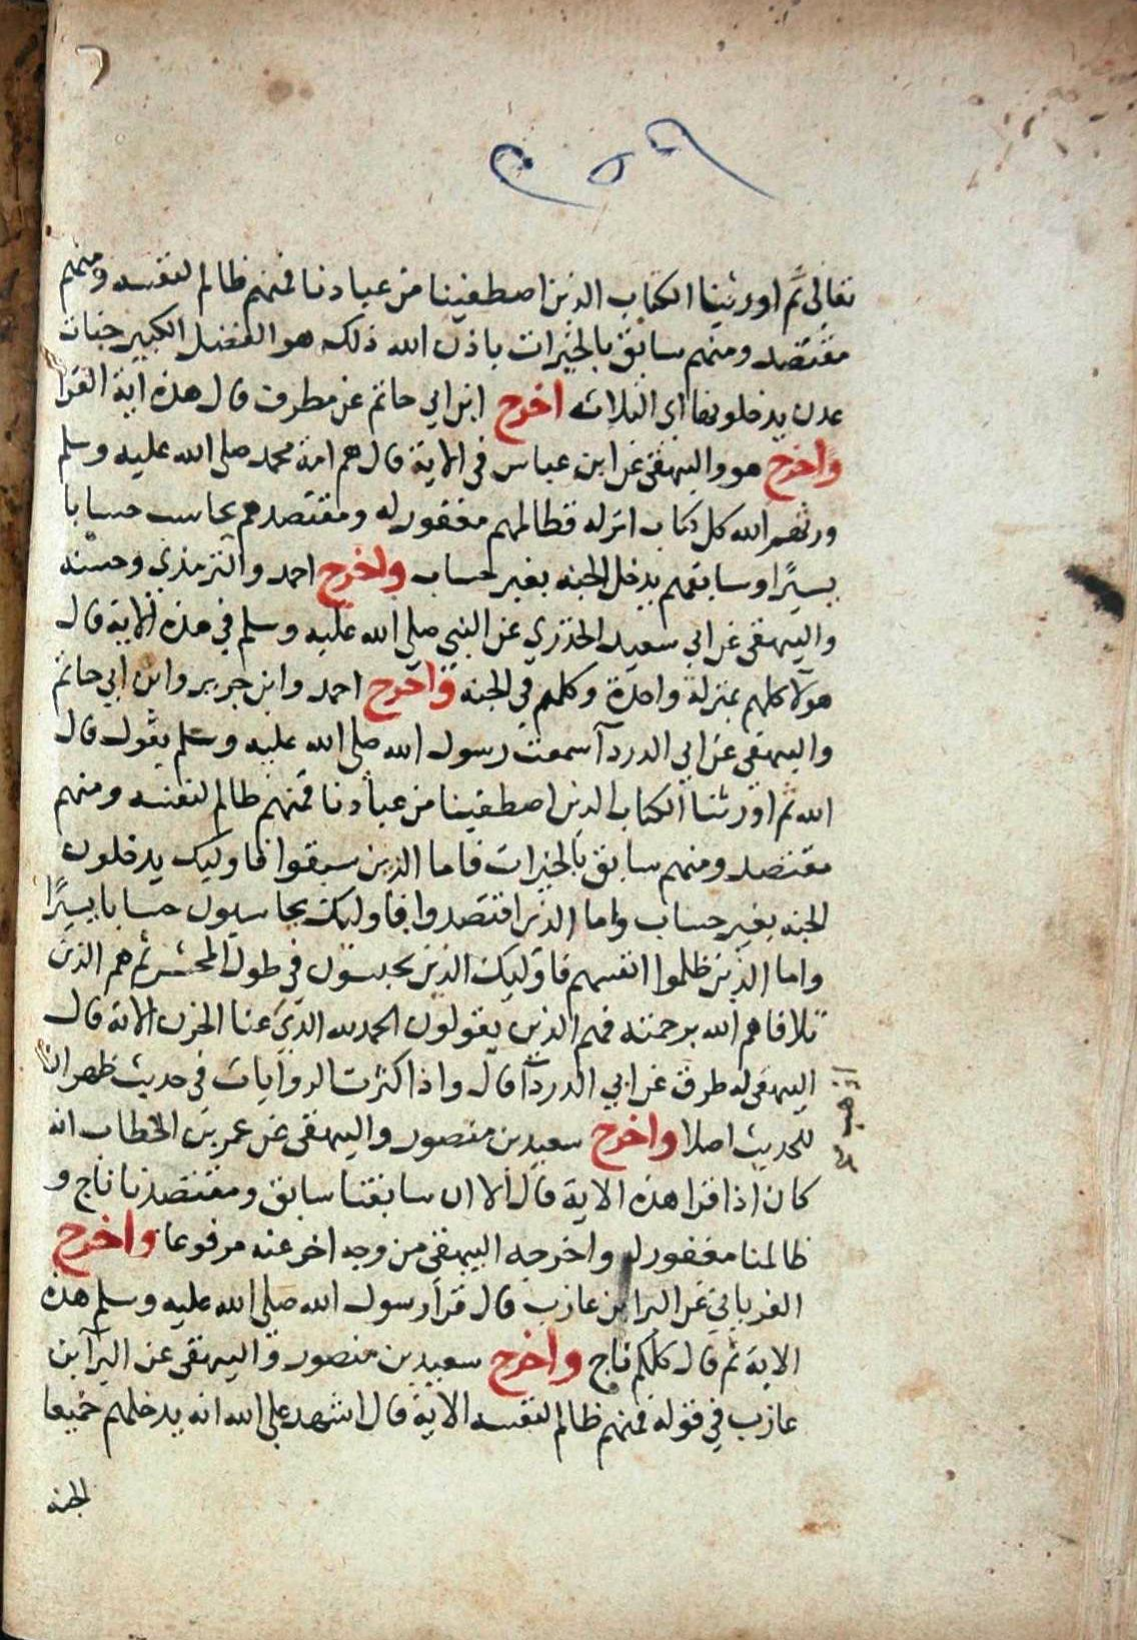 تعالى ثم اورثينا الكتاب الذين اصطفينا من عبادنا فمنهم ظالم لنفسه ومنهم
مقتصد ومنهم سابق بالخيرات باذن الله ذلك هو الفضل الكبير جنات
عدن يدخلونها اى الثلاثه اخرج ابن ابي حاتم عن مطرف قال هذه آية القرا
واخرج هو والبيهقى عن ابن عباس فى الاية قال هم امة محمد صلى الله عليه وسلم
ورثهم الله كل كتاب انزله فظالمهم مغفور له ومقتصدهم يحاسب حسابا
يسيرًا وسابقهم يدخل الجنه بغير حساب واخرج احمد والترمذي وحسنه
والبيهقى عن ابي سعيد الخدري عن النبى صلى الله عليه وسلم في هذه الاية قال
هولآ كلهم بمنزلة واحدة وكلهم في الجنه واخرج احمد وابن جرير وابن ابي حاتم
والبيهقى عن ابي الدردآ سمعت رسول الله صلى الله عليه وسلم يقول قال
الله ثم اورثنا الكتاب الذين اصطفينا من عبادنا فمنهم ظالم لنفسه ومنهم
مقتصد ومنهم سابق بالخيرات فاما الذين سبقوا فاوليك يدخلون
الجنه بغير حساب واما الذين اقتصدوا فاوليك يحاسبون حسابا يسيرًا
واما الذين ظلموا انفسهم فاوليك الذين يحبسون في طول المحشر ثم هم الذين
تلافاهم الله برحمته فهم الذين يقولون الحمد لله الذي عنا الحزن الاية قال
البيهقى له طرق عن ابي الدردآ قال واذا كثرت الروايات في حديث ظهر ان
للحديث اصلا واخرج سعيد بن منصور والبيهقى عن عمر بن الخطاب انه
كان اذا قرا هذه الاية قال الا ان سابقنا سابق ومقتصدنا ناج و
ظالمنا مغفور له واخرجه البيهقى من وجه اخر عنه مرفوعا واخرج
الفريابي عن البرا بن عازب قال قرا رسول الله صلى الله عليه وسلم هذه
الاية ثم قال كلكم ناج واخرج سعيد بن منصور والبيهقى عن البرآ بن
عازب في قوله فمنهم ظالم لنفسه الاية قال اشهد على الله انه يدخلهم جميعا
الجنه